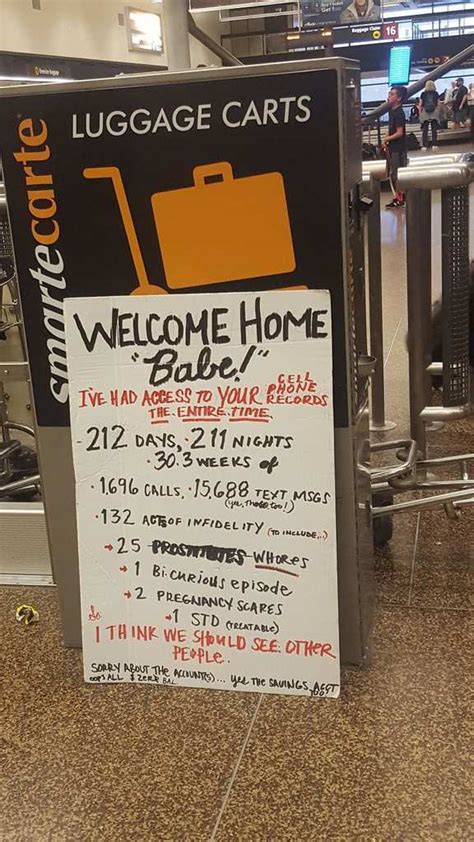 Baggage Claim 16
LUGGAGE CARTS
smartecarte
WELCOME HOME
"Babe!"
I'VE HAD ACCESS TO YOUR CELL PHONE RECORDS
THE ENTIRE TIME.
212 DAYS, 211 NIGHTS
30.3 WEEKS of
1,696 CALLS, 15,688 TEXT MSGS
(yes, those too!)
132 ACTS OF INFIDELITY (TO INCLUDE...)
25 PROSTITUTES WHORES
1 Bi-curious episode
2 PREGNANCY SCARES
1 STD (TREATABLE)
So
I THINK WE SHOULD SEE OTHER
PEOPLE.
SORRY ABOUT THE ACCOUNT(S)... yes THE SAVINGS ACCT
oops ALL $ ZERO BAL TOO!